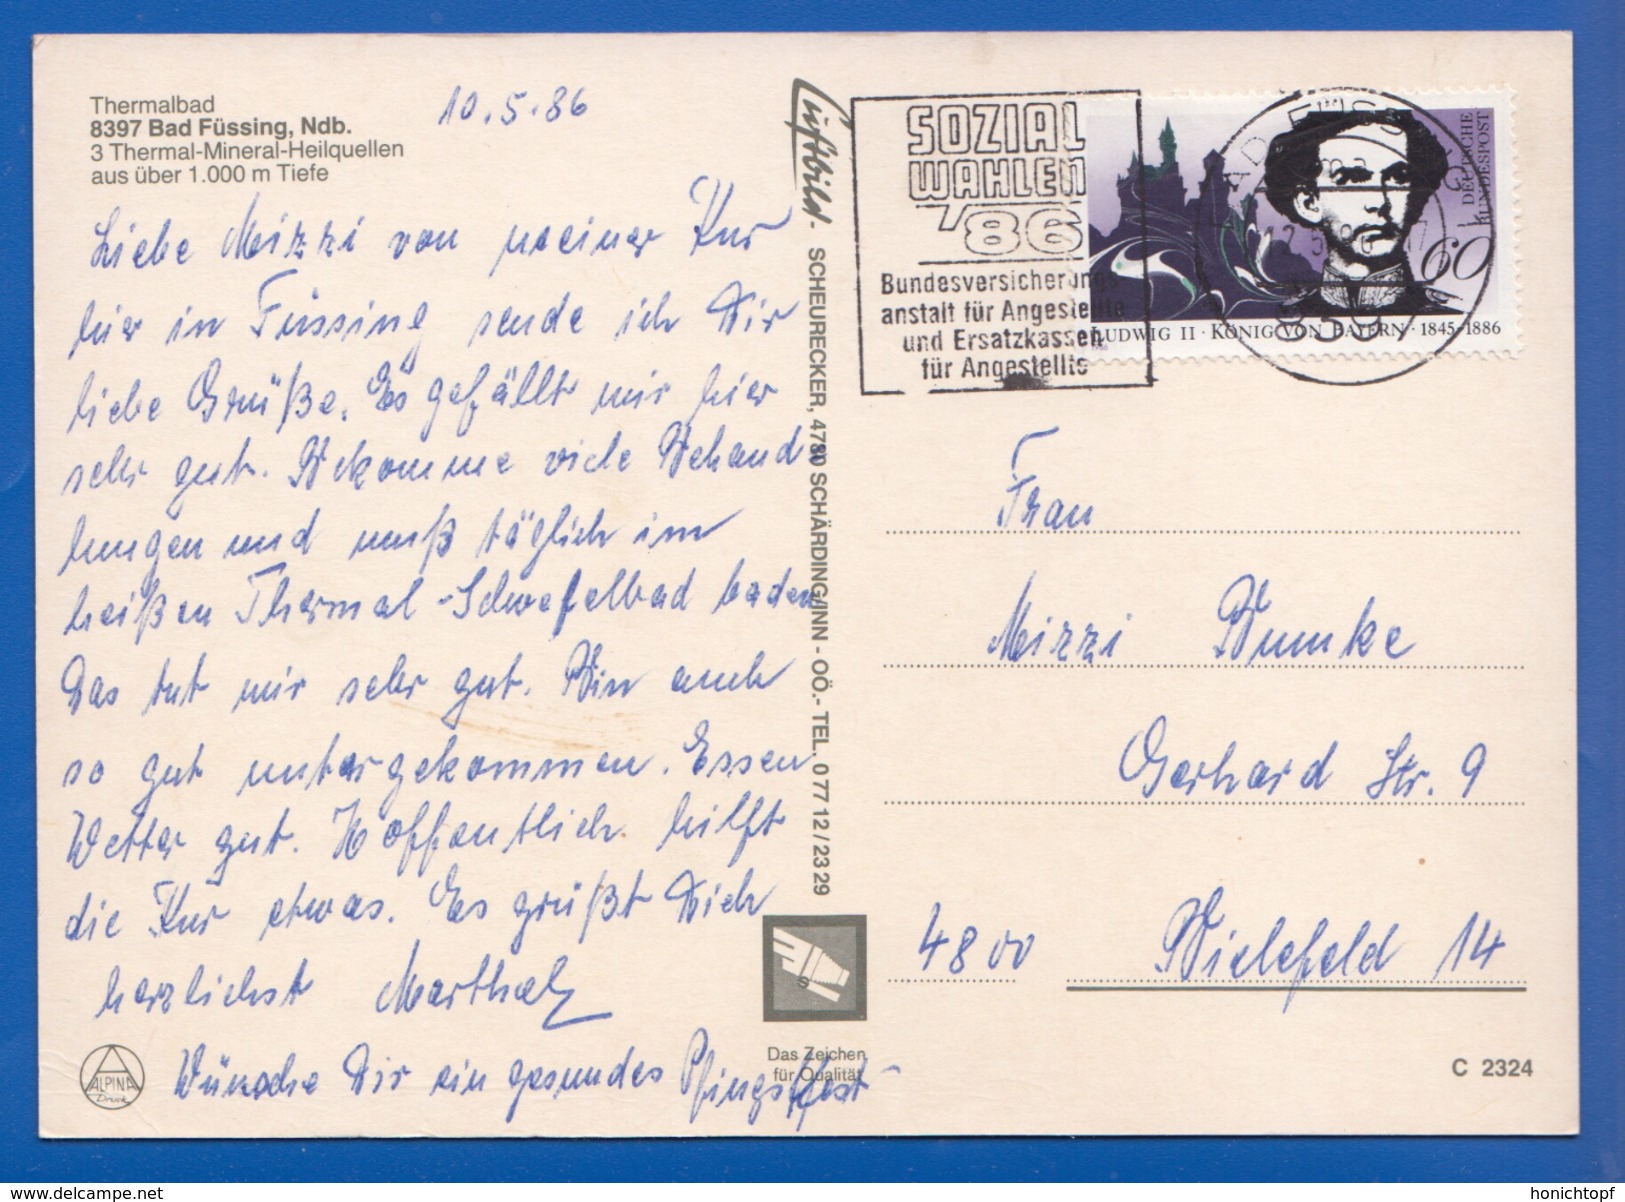 Thermalbad
8397 Bad Füssing, Ndb.
3 Thermal-Mineral-Heilquellen
aus über 1.000 m Tiefe
10.5.86
Liebe Mizzi von meiner Kur
hier in Füssing sende ich Dir
liebe Grüße. Es gefällt mir hier
sehr gut. Bekomme viele Behand
lungen und muß täglich im
heißen Thermal-Schwefelbad baden
Das tut mir sehr gut. Bin auch
so gut untergekommen. Essen
Wetter gut. Hoffentlich hilft
die Kur etwas. Es grüßt Dich
herzlichst Martha
Wünsche Dir ein gesundes Pfingstfest
ALPINA
Druck
Luftbild
SCHEURECKER, 4780 SCHÄRDING/INN - OÖ.- TEL. 0 77 12 / 23 29
Das Zeichen
für Qualität
SOZIAL
WAHLEN
'86
Bundesversicherungs
anstalt für Angestellte
und Ersatzkassen
für Angestellte
DEUTSCHE
BUNDESPOST
60
LUDWIG II · KÖNIG VON BAYERN · 1845-1886
Frau
Mizzi Bumke
Gerhard Str. 9
4800 Bielefeld 14
C 2324
honichtopf
www.delcampe.net